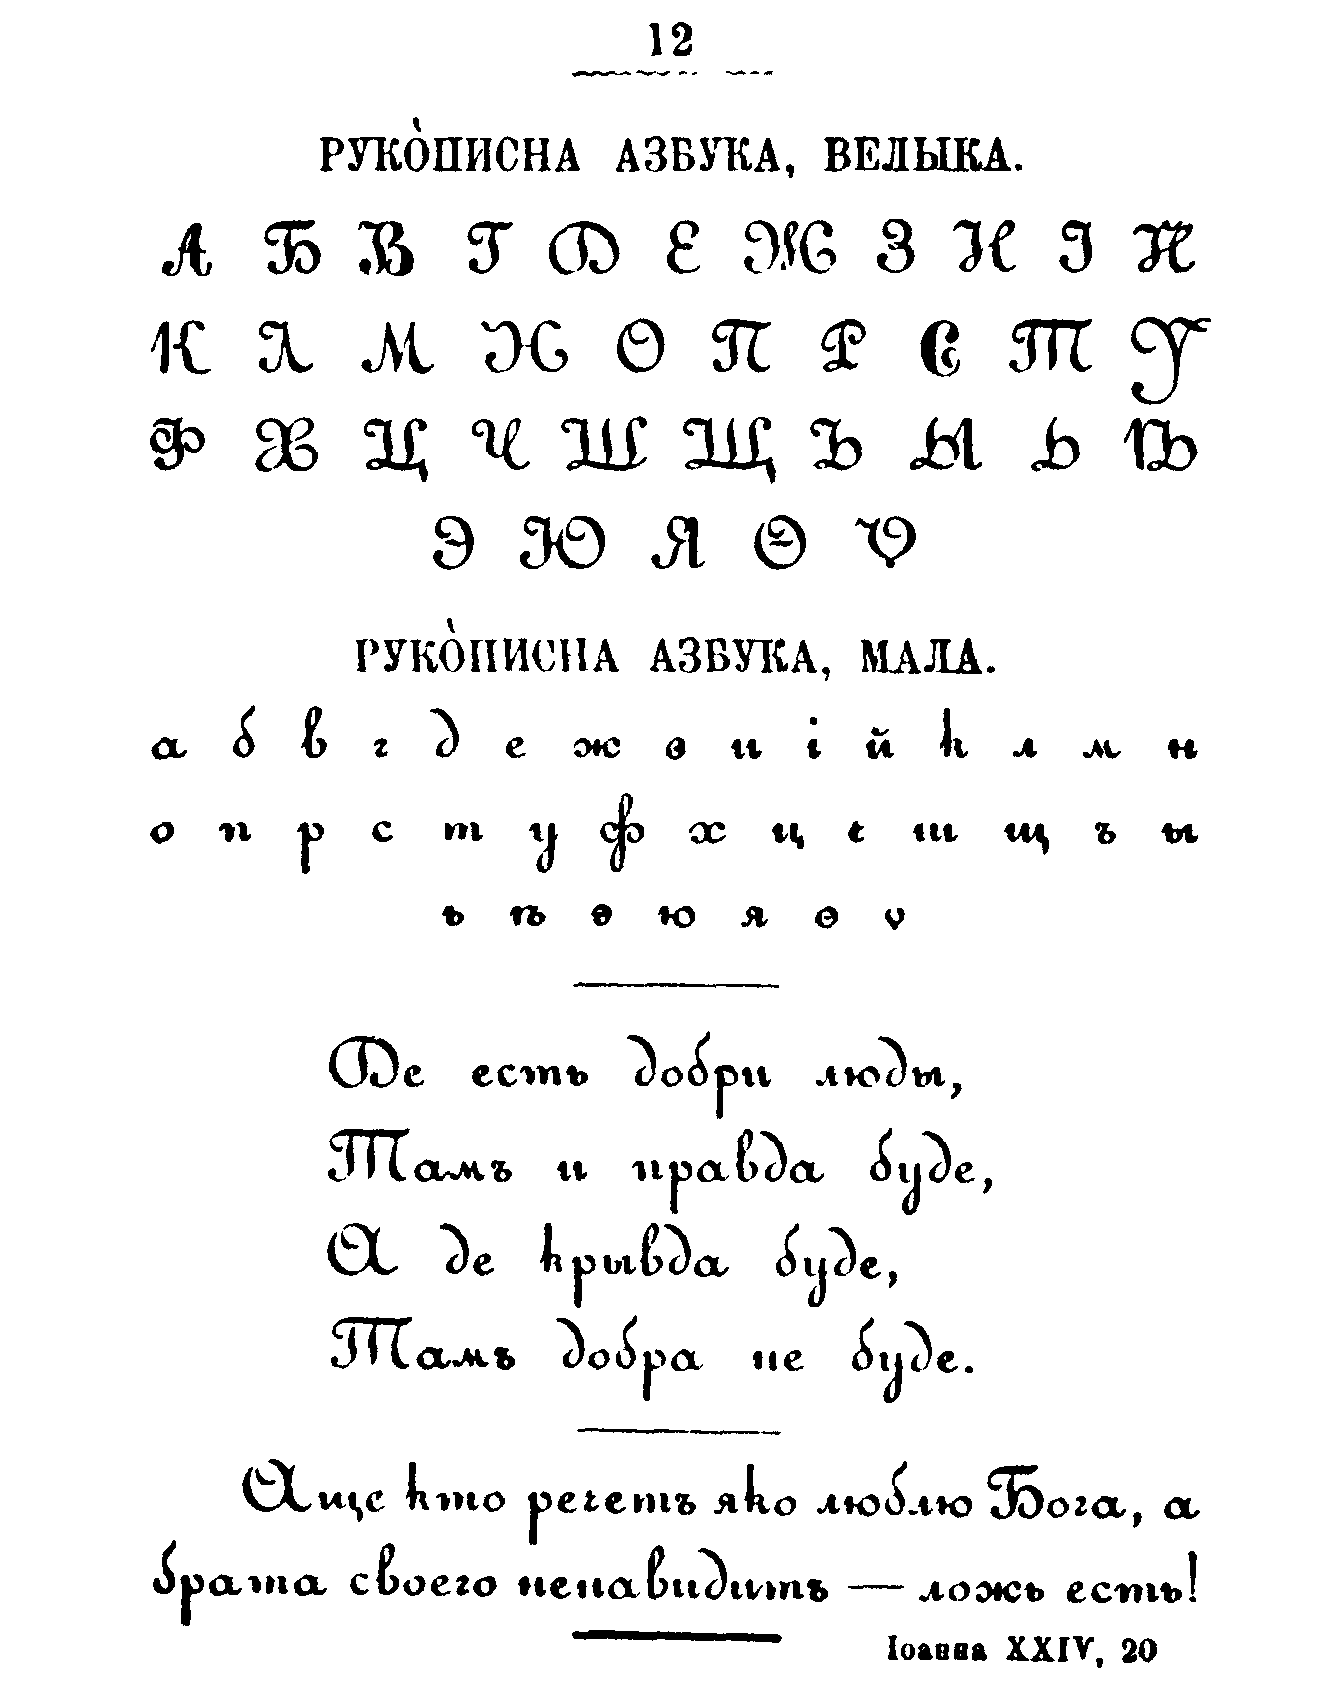 12
РУКО̀ПИСНА АЗБУКА, ВЕЛЫКА.
А Б В Г Д Е Ж З И І Й
К Л М Н О П Р С Т У
Ф Х Ц Ч Ш Щ Ъ Ы Ь Ѣ
Э Ю Я Ѳ Ѵ
РУКО̀ПИСНА АЗБУКА, МАЛА.
а б в г д е ж з и і й к л м н
о п р с т у ф х ц ч ш щ ъ ы
ь ѣ э ю я ѳ ѵ
Де есть добри люды,
Тамъ и правда буде,
А де крывда буде,
Тамъ добра не буде.
Аще кто речетъ яко люблю Бога, а
брата своего ненавидитъ — ложь есть!
Іоанна XXIV, 20